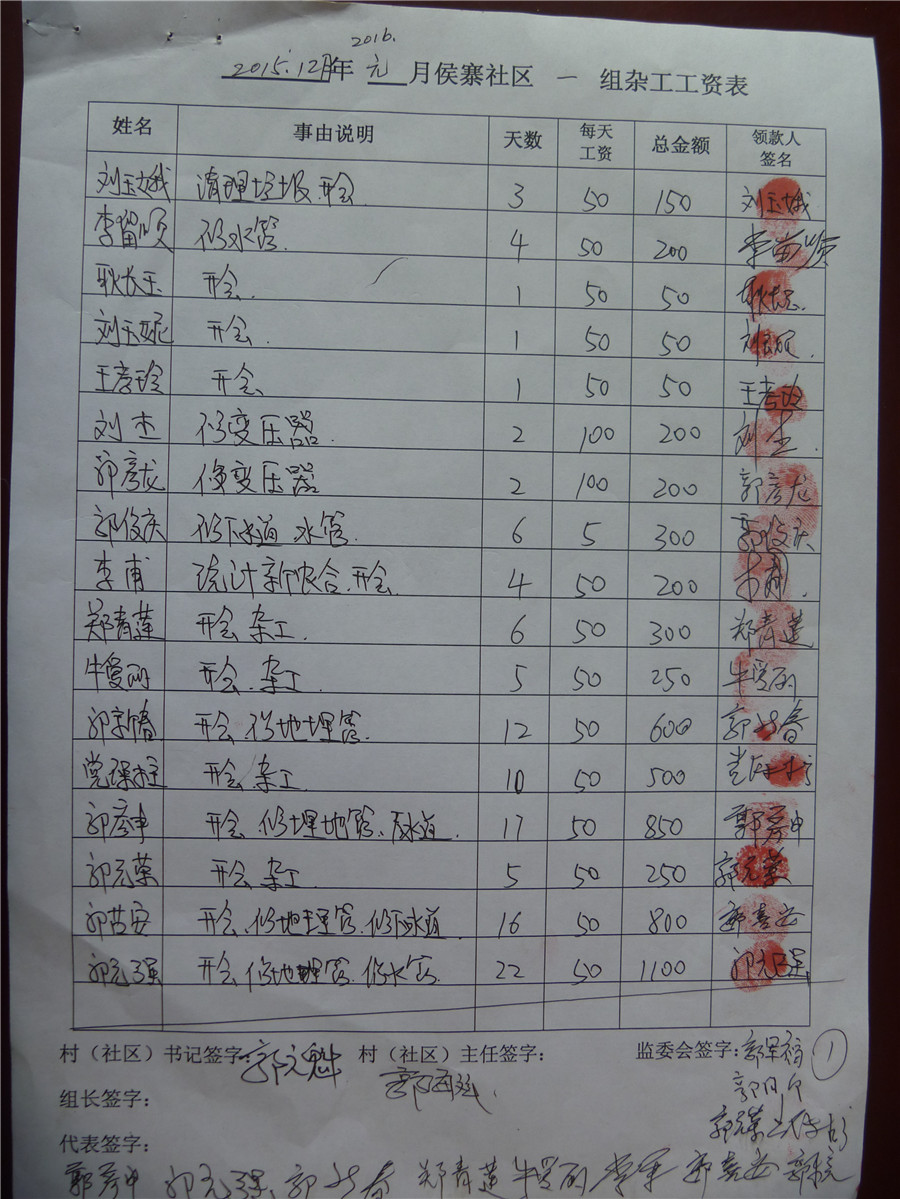 2016.
2015.12月年 元 月侯寨社区 一 组杂工工资表
姓名 事由说明 天数 每天工资 总金额 领款人签名
刘玉娥 清理垃圾.开会 3 50 150 刘玉娥
李留顺 修水管. 4 50 200 李留顺
耿长玉 开会. 1 50 50 耿长玉.
刘玉妮 开会. 1 50 50 刘玉妮.
王彦玲 开会 1 50 50 王彦玲
刘杰 修变压器 2 100 200 刘杰.
郭彦龙 修变压器 2 100 200 郭彦龙
郭俊庆 修下水道 水管. 6 5 300 郭俊庆
李甫 统计新农合.开会. 4 50 200 李甫.
郑青莲 开会.杂工. 6 50 300 郑青莲
牛爱丽 开会.杂工. 5 50 250 牛爱丽
郭新春 开会.修地埋管. 12 50 600 郭新春
党保柱 开会.杂工. 10 50 500 党保柱
郭彦申 开会.修埋地管.下水道. 17 50 850 郭彦申
郭元荣 开会.杂工. 5 50 250 郭元荣
郭喜安 开会.修地埋管.修下水道. 16 50 800 郭喜安
郭元强 开会.修地埋管.修水管. 22 50 1100 郭元强
村（社区）书记签字：郭文魁 村（社区）主任签字： 监委会签字： 1
组长签字：
郭元荣
代表签字：
郭彦申 郭元强 郭新春 郑青莲 牛爱丽 郭喜安